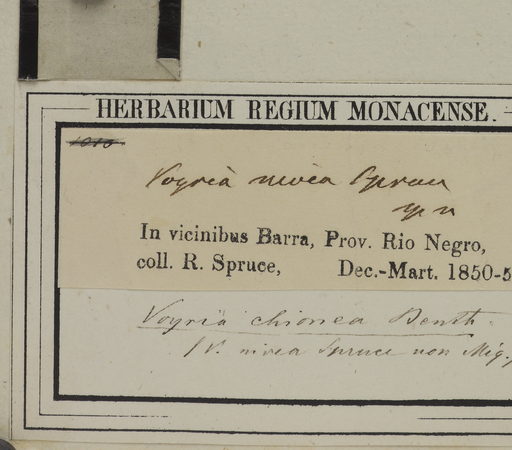 HERBARIUM REGIUM MONACENSE.
1010
Voyria nivea Spruce
In vicinibus Barra, Prov. Rio Negro,
coll. R. Spruce, Dec.-Mart. 1850-5
Voyria chionea Benth.
(V. nivea Spruce non Miq.